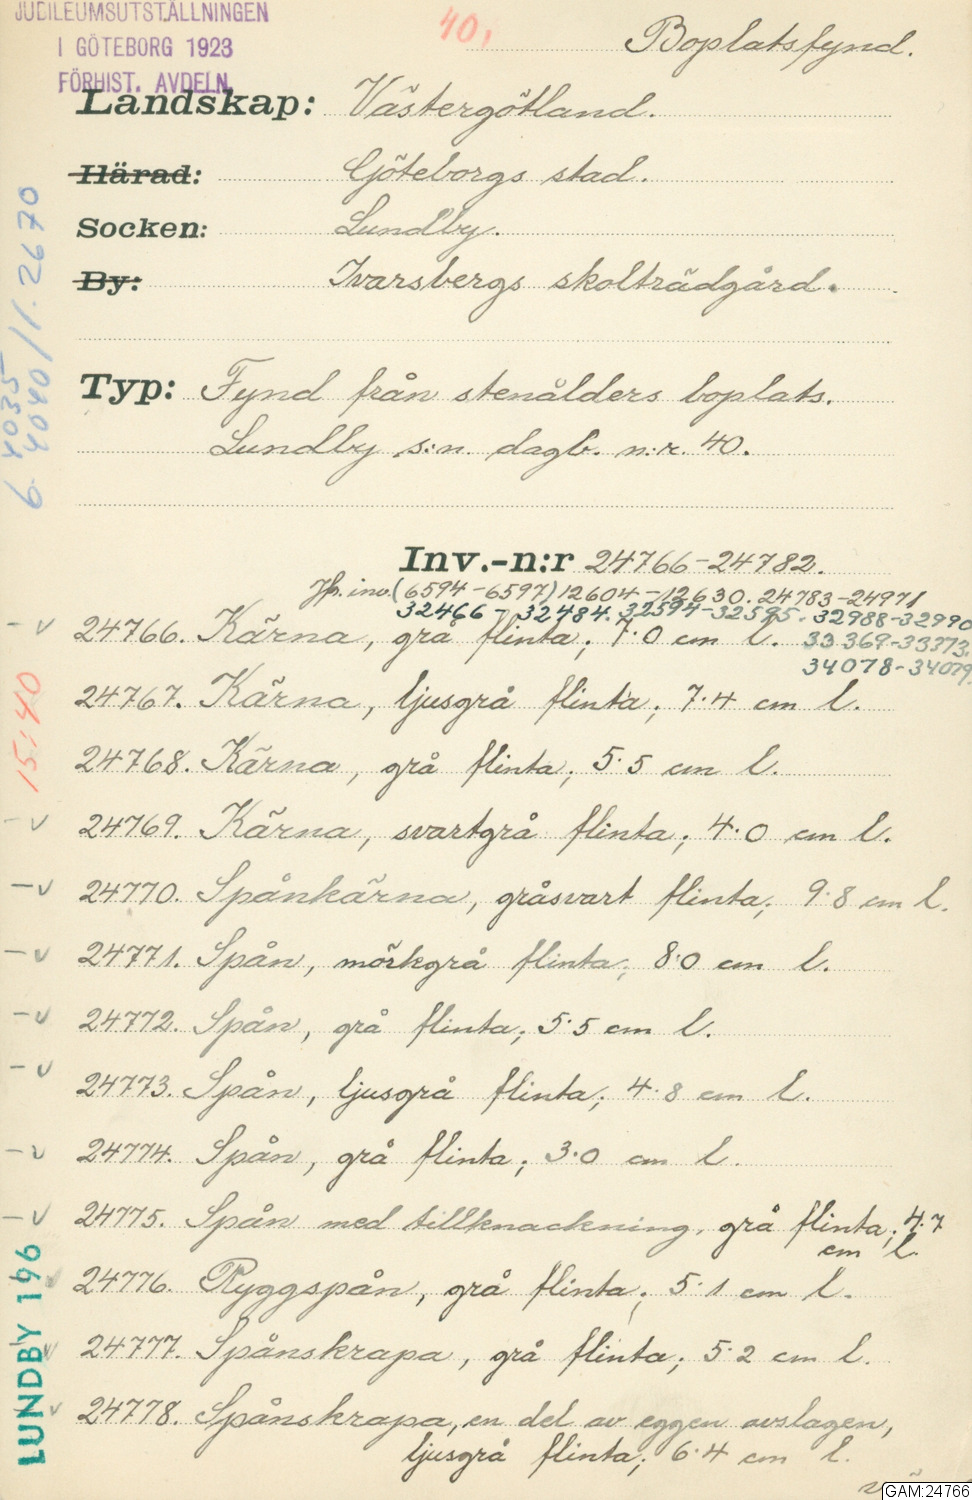 JUBILEUMSUTSTÄLLNINGEN
I GÖTEBORG 1923
FÖRHIST. AVDELN.
40.
Boplatsfynd.
Landskap: Västergötland.
Härad: Göteborgs stad.
Socken: Lundby.
By: Ivarsbergs skolträdgård.
Typ: Fynd från stenålders boplats.
Lundby s:n. dagb. n:r. 40.
Inv.-n:r 24766-24782.
Jfr. inv. (6594-6597) 12604-12630. 24783-24971
32466-32484. 32594-32595. 32988-32990
33369-33373.
34078-34079.
24766. Kärna, grå flinta; 7.0 cm l.
24767. Kärna, ljusgrå flinta; 7.4 cm l.
24768. Kärna, grå flinta; 5.5 cm l.
24769. Kärna, svartgrå flinta; 4.0 cm l.
24770. Spånkärna, gråsvart flinta; 9.8 cm l.
24771. Spån, mörkgrå flinta; 8.0 cm l.
24772. Spån, grå flinta; 5.5 cm l.
24773. Spån, ljusgrå flinta; 4.8 cm l.
24774. Spån, grå flinta; 3.0 cm l.
24775. Spån med tillknackning, grå flinta; 4.7
cm l.
24776. Ryggspån, grå flinta; 5.1 cm l.
24777. Spånskrapa, grå flinta; 5.2 cm l.
24778. Spånskrapa, en del av eggen avslagen,
ljusgrå flinta; 6.4 cm l.
6. 4035
4040 / 1. 2670
15:40
LUNDBY 196
GAM:24766